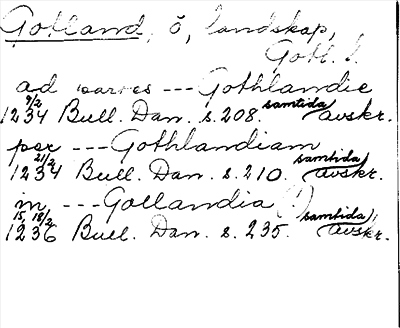 Gotland, ö, landskap,
Gotl. l.
ad partes --- Gothlandie
9/2 samtida
1234 Bull. Dan. s. 208. avskr.
per --- Gothlandiam
21/2 samtida
1234 Bull. Dan. s. 210. avskr.
in --- Gollandia (!)
15, 18/2 samtida
1236 Bull. Dan. s. 235. avskr.